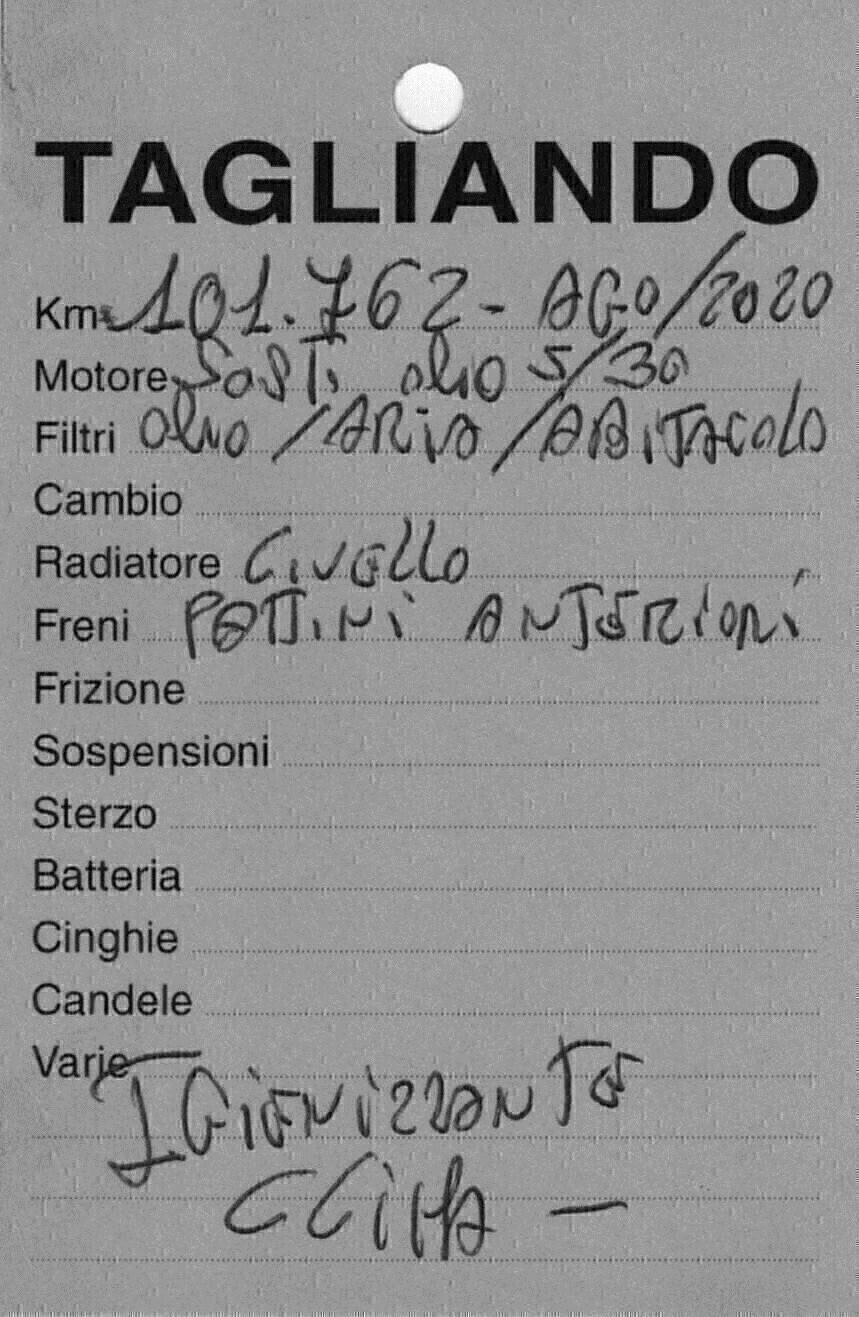 TAGLIANDO
Km 101.762 - AGO/2020
Motore SOST. olio 5/30
Filtri olio / ARIA / ABITACOLO
Cambio
Radiatore LIVELLO
Freni PATTINI ANTERIORI
Frizione
Sospensioni
Sterzo
Batteria
Cinghie
Candele
Varie
IGIENIZZANTE
CLIMA -